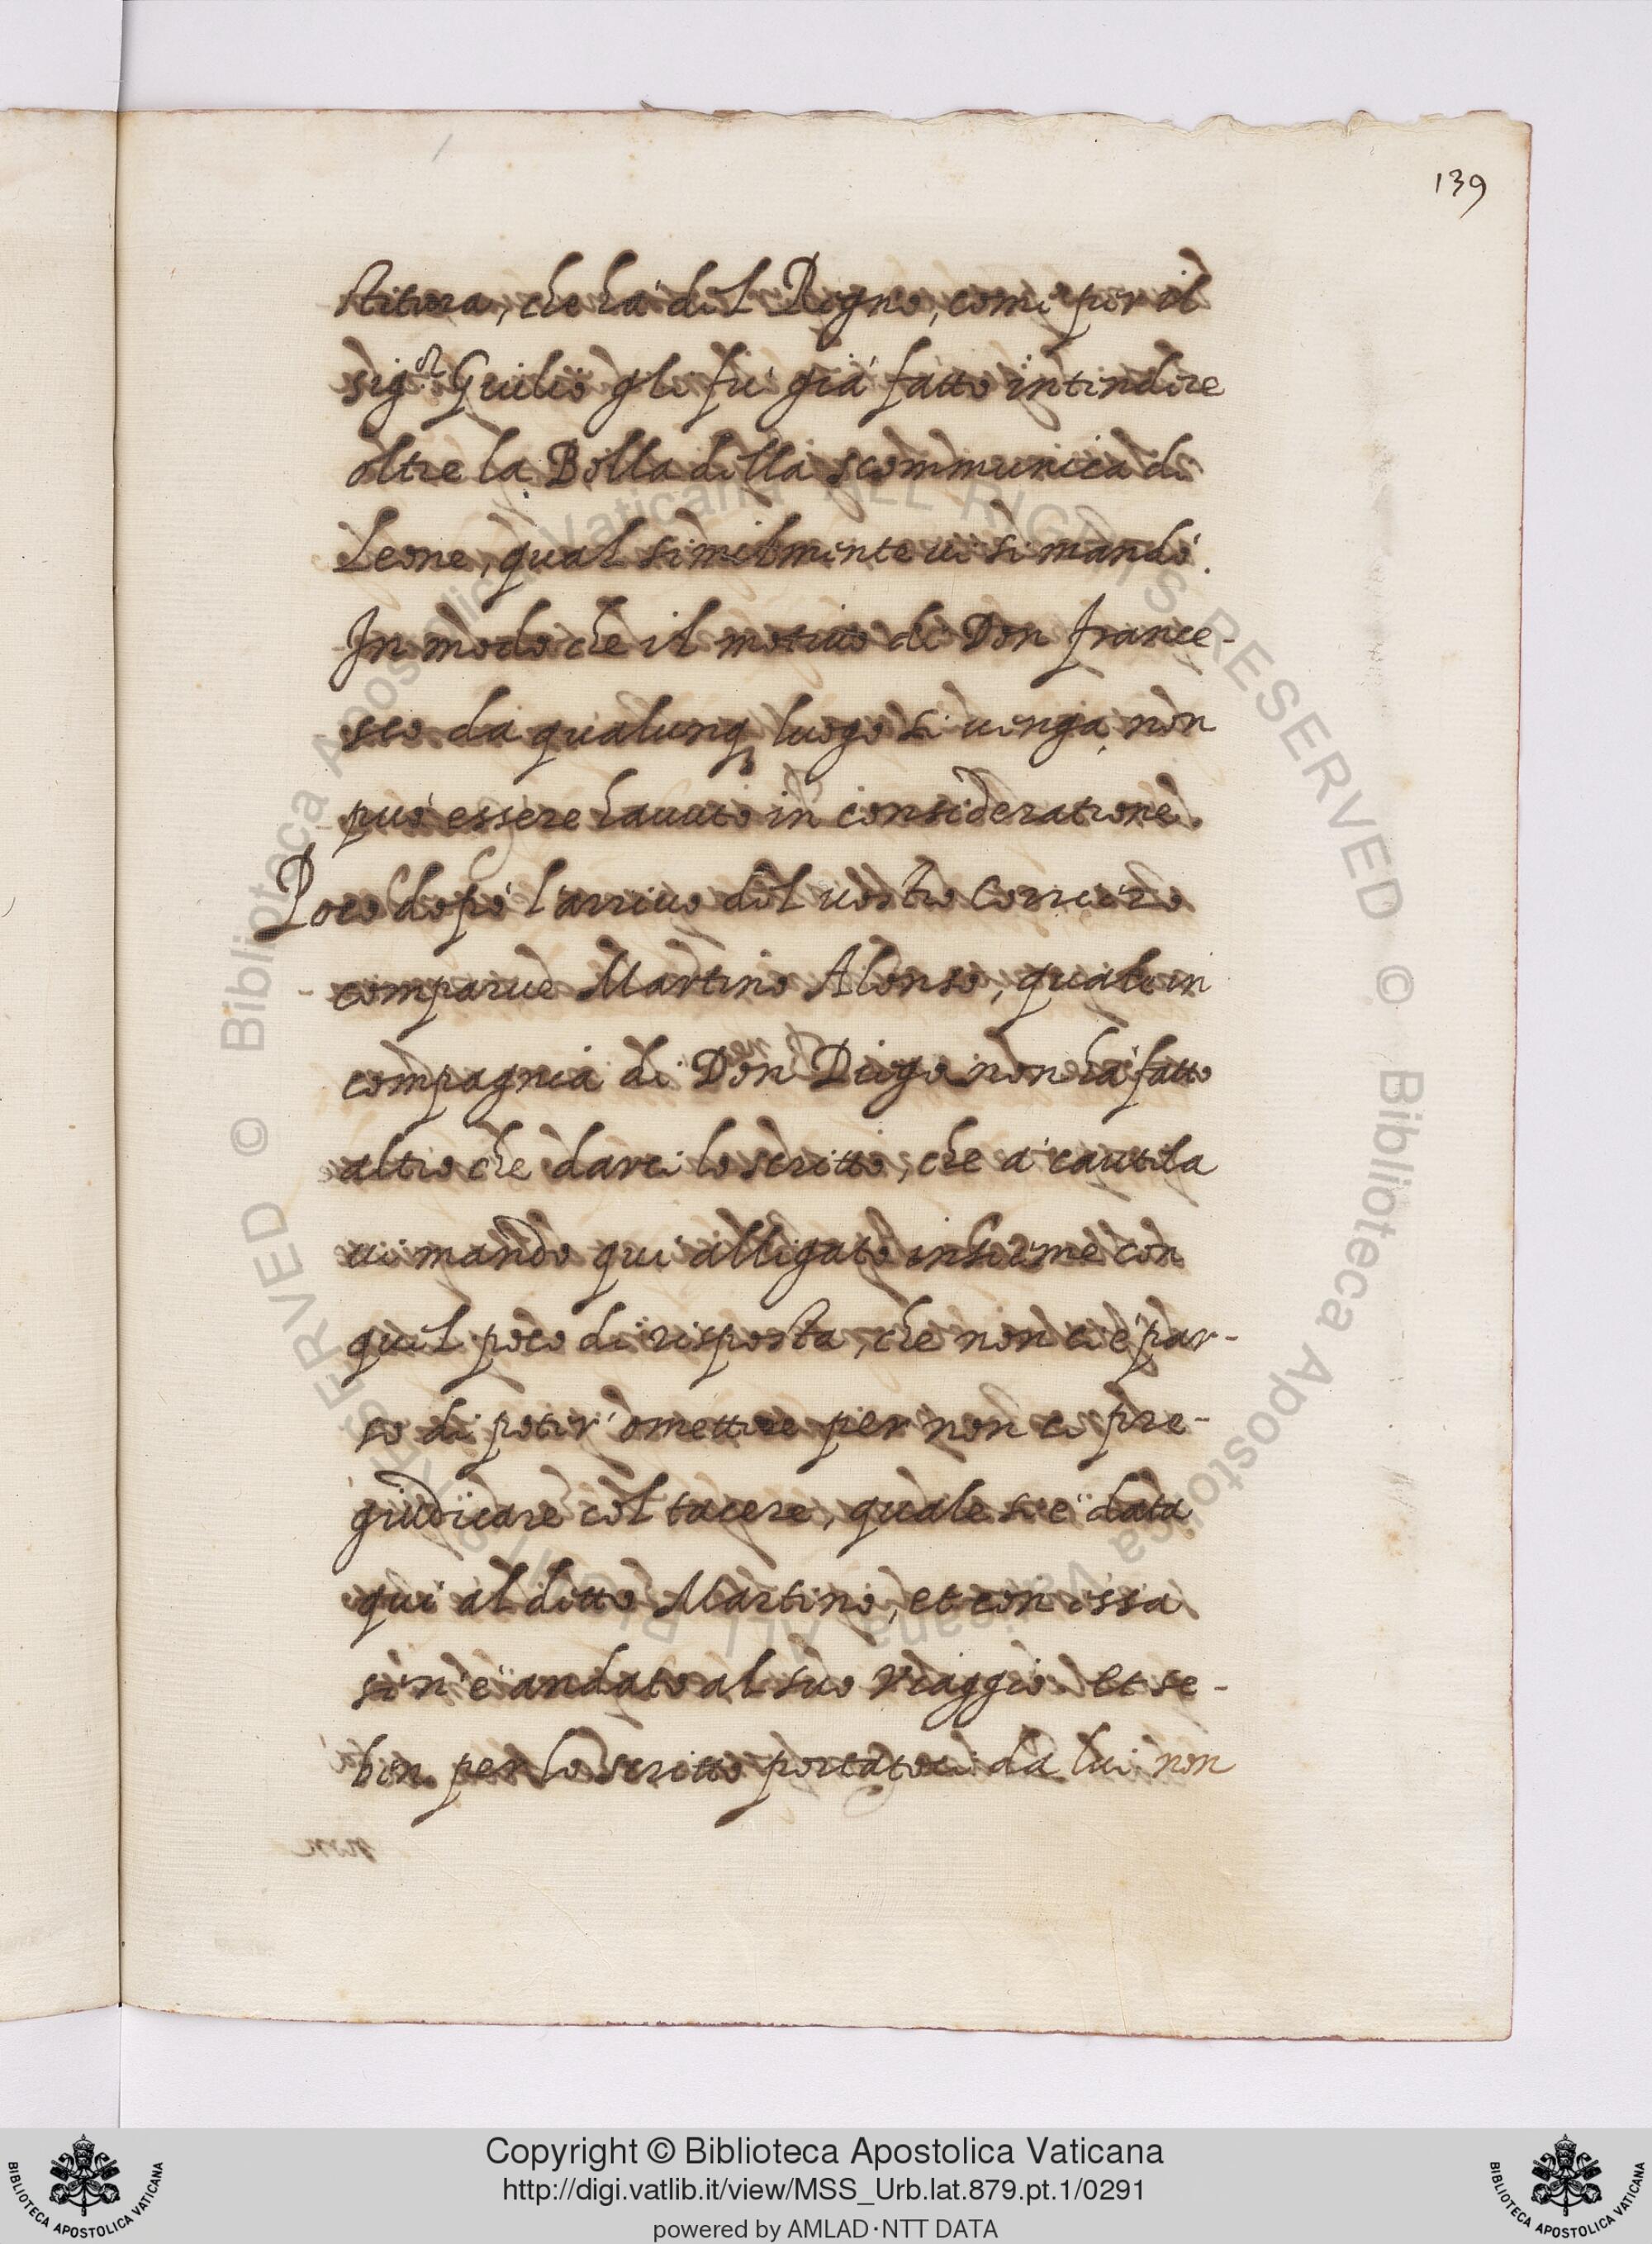 139
stitura, che hà del Regno, come per il
sig.r Giulio gli fù già fatto intendere
oltre la Bolla della scommunica di
Leone, qual similmente vi si mandò.
In modo che il motivo di Don france-
sco da qualunq luogo si venga non
può essere havuto in consideratione.
Poco dopò l'arrivo del vostro Corriero
comparve Martino Alonso, quale in
compagnia di Don Diego non hà fatto
altro che darci lo scritto, che à cautela
vi mando qui alligato insieme con
quel poco di risposta, che non ci è par-
so di poter omettere per non ci pre-
giudicare col tacere, quale si è data
qui al detto Martino, et con essa
se n'è andato al suo viaggio. Et se-
ben per lo scritto portatoci da lui non
Copyright © Biblioteca Apostolica Vaticana
http://digi.vatlib.it/view/MSS_Urb.lat.879.pt.1/0291
powered by AMLAD·NTT DATA
BIBLIOTECA APOSTOLICA VATICANA
BIBLIOTECA APOSTOLICA VATICANA
© Biblioteca Apostolica Vaticana ALL RIGHTS RESERVED
© Biblioteca Apostolica Vaticana ALL RIGHTS RESERVED